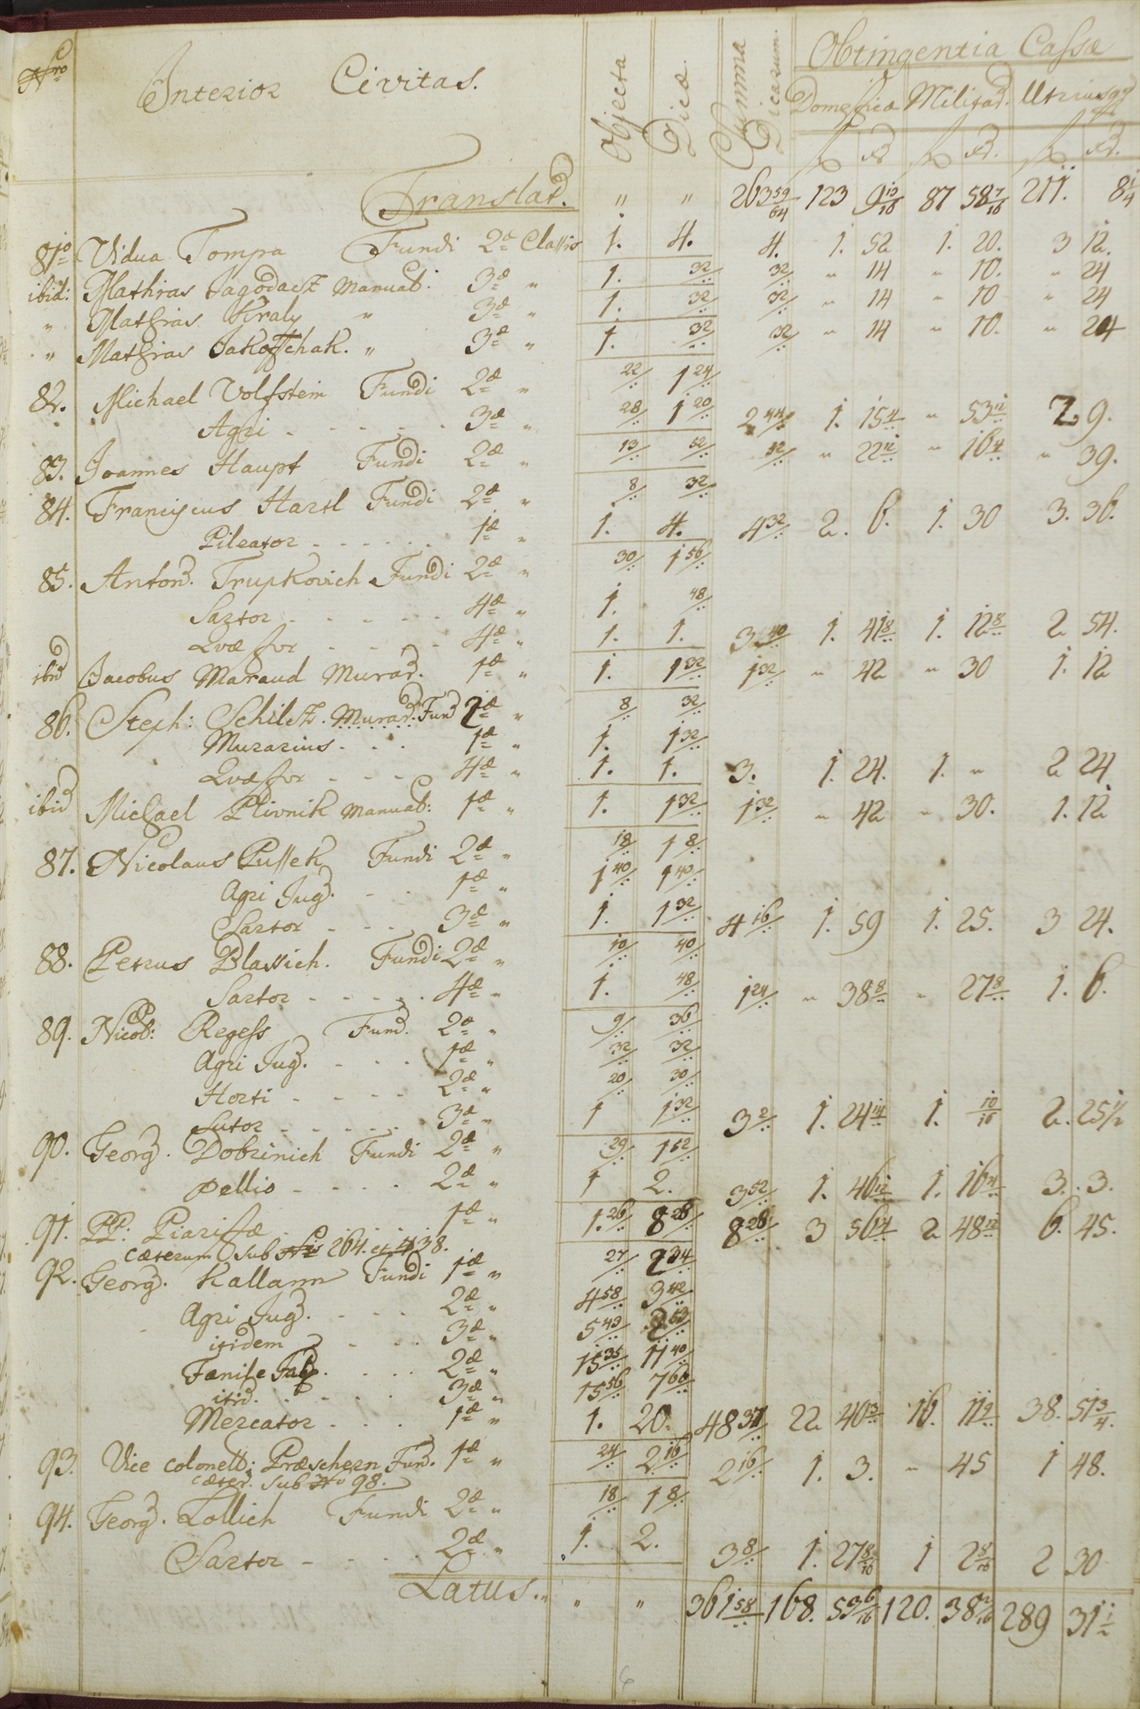 Nro Interior Civitas. Objecta Dicæ. Summa Dicarum. Obtingentia Cassæ
Domesticæ Militar. Utriusque
f xr. f xr. f xr.
Translat. " " 263 59/64 123 9 10/16 87 58 7/16 211. 8 1/4
81io Vidua Tompa Fundi 2æ Classis 1. 4. 4. 1. 52 1. 20. 3 12.
ibid: Mathias Jagodacz Manual: 3æ " 1. 32/ 32/ " 14 " 10. " 24
" Mathias Kraly " 3æ " 1. 32/ 32/ " 14 " 10 " 24
" Mathias Jakoptchak. " 3æ " 1. 32/ 32/ " 14 " 10. " 24
82. Michael Volfstein Fundi 2æ " 22/ 1 24/
Agri - - - - - 3æ " 28/ 1 20/ 2 44/ 1. 15 4 " 53 12 2 9.
83. Joannes Haupt Fundi 2æ " 13/ 52/ 52/ " 22 12 " 16 4 " 39.
84. Franciscus Hartl Fundi 2æ " 8/ 32/
Pileator - - - - - 1æ " 1. 4. 4 32/ 2. 6. 1. 30 3. 36.
85. Anton. Trupkovich Fundi 2æ " 30/ 1 56/
Sartor - - - - - 4æ " 1. 48/
Quæstor - - - - 4æ " 1. 1. 3 40/ 1. 41 8 1. 12 8 2 54.
ibid Jacobus Maraud Murar. 1æ " 1. 1 32/ 1 32/ " 42 " 30 1. 12
86. Steph: Schiletz. Murar. Fund 2æ " 8/ 32/
Murarius - - - 1æ " 1. 1 32/
Quæstor - - - - 4æ " 1. 1. 3. 1. 24. 1. " 2 24
ibid Michael Plivnik Manual: 1æ " 1. 1 32/ 1 32/ " 42 " 30. 1. 12
87. Nicolaus Pussek Fundi 2æ " 18/ 1 8/
Agri Jug. - - 1æ " 1 40/ 1 40/
Sartor - - - 3æ " 1. 1 32/ 4 16/ 1. 59 1. 25. 3 24.
88. Petrus Blassich. Fundi 2æ " 10/ 40/
Sartor - - - - - 4æ " 1. 48/ 1 24/ " 38 8 " 27 8 1. 6.
89. Nicol: Regess Fund. 2æ " 9/ 36/
Agri Jug. - - - 1æ " 32/ 32/
Horti - - - - 2æ " 20/ 30/
Sutor - - - - - 3æ " 1 1 32/ 3 2 1. 24 14 1. 10/16 2. 25 1/2
90. Georg. Dobrinich Fundi 2æ " 29/ 1 52/
Pellio - - - - 2æ " 1 2. 3 52/ 1. 46 12 1. 16 4 3. 3.
91. PP: Piaristæ - - - - 1æ " 1. 26/ 8 26/ 8 26/ 3 56 14 2 48 12 6. 45.
Cæterum Sub Nis 264. et 438.
92. Georg. Kallann Fundi 1æ " 27/ 2 24
Agri Jug. - - - - 2æ " 4 58/ 3 42
itidem - - - - 3æ " 5 43/ 2 52
Fænile Falc. - - - 2æ " 15 35/ 11 40/
itid. - - - - 3æ " 15 56/ 7 60/
Mercator - - - 1æ " 1. 20. 48 37 22 40 13 16. 11 2 38. 51 3/4.
93. Vice Colonell: Præschern Fund. 1æ " 24/ 2 16/ 2 16/ 1. 3. " 45 1 48.
cæter. Sub No 98.
94. Georg. Lollich Fundi 2æ " 18/ 1 8/
Sartor - - - - 2æ " 1. 2. 3 8/ 1. 27 8/16 1 2 8/16 2 30
Latus. " " " 361 58 168. 53 6/16 120. 38 2/16 289 31 1/2
6